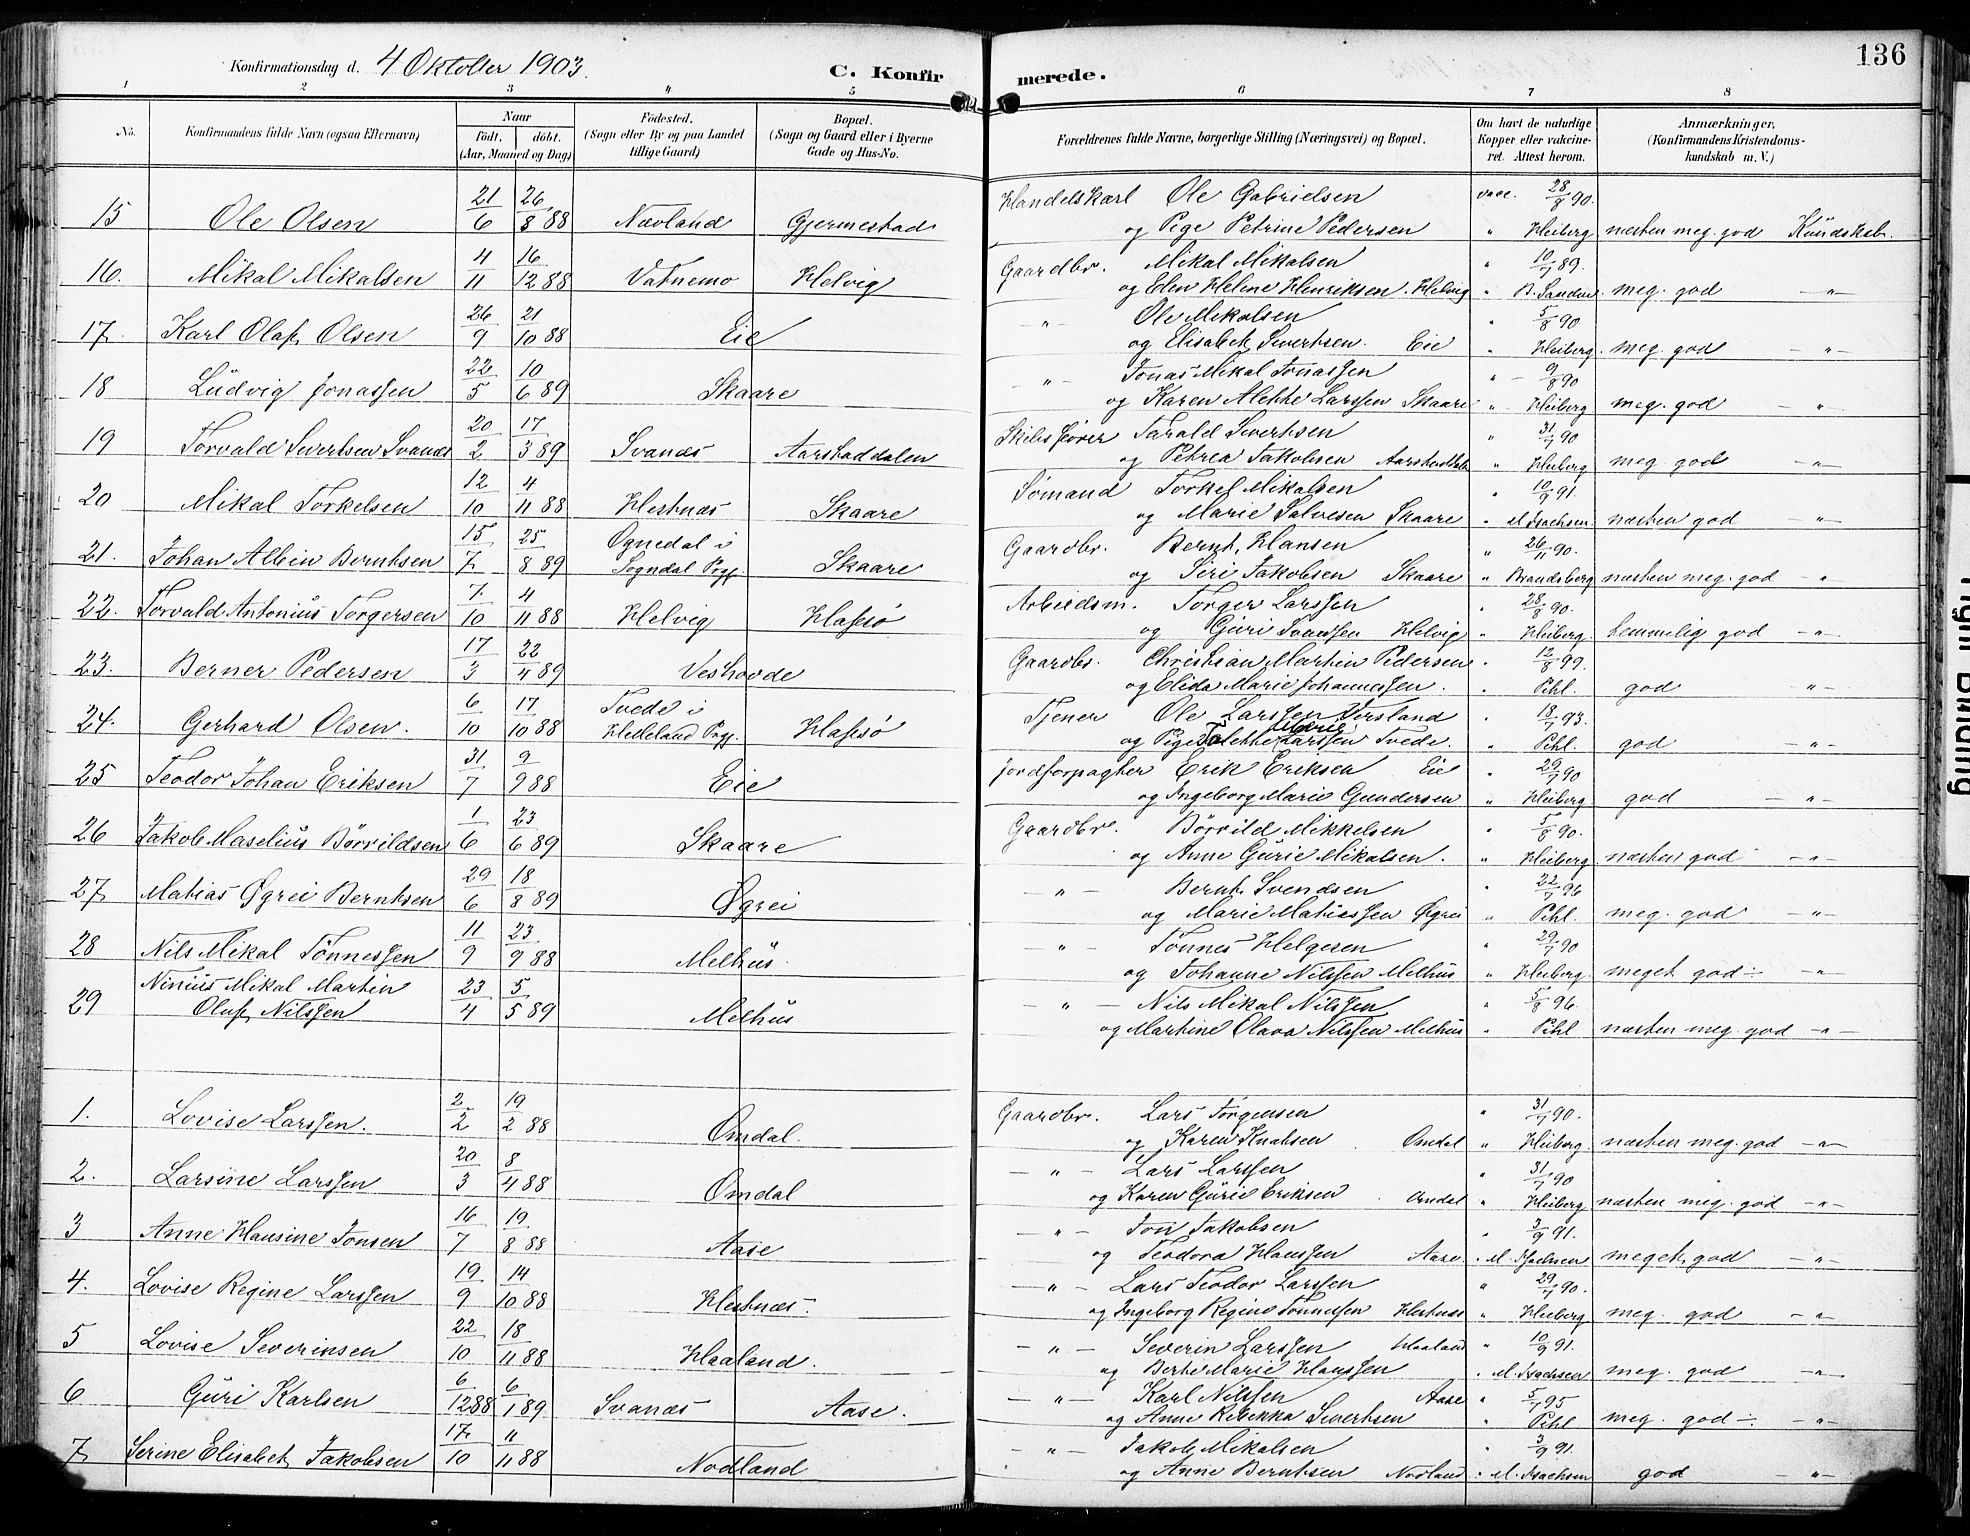 Konfirmationsdag d. 4 Oktober 1903. C. Konfirmerede. 136
1 2 3 4 5 6 7 8
No. Konfirmandens fulde Navn (ogsaa Efternavn) Naar født. døbt. (Aar, Maaned og Dag) Fødested. (Sogn eller By og paa Landet tillige Gaard) Bopæl. (Sogn og Gaard eller i Byerne Gade og Hus-No. Forældrenes fulde Navne, borgerlige Stilling (Næringsvei) og Bopæl. Om havt de naturlige Kopper eller vakcineret. Attest herom. Anmærkninger, (Konfirmandens Kristendomskundskab m. V.)
15 Ole Olsen 21/6 26/8 88 Nævland Gjermestad Handelskarl Ole Gabrielsen vacc. 28/8 90.
og Pige Petrine Pedersen " Heiberg næsten meg. god Kundskab.
16. Mikal Mikalsen 4/11 16/12 88 Vatnemo Helvig Gaardbr. Mikal Mikalsen " 10/7 89.
og Elen Helene Henriksen. Helvig " meg. god – " –
17. Karl Olaf Olsen 26/9 21/10 88 Eie – " – Ole Mikalsen " 5/8 90
og Elisabet Sivertsen. Eie " Heiberg. meg. god – " –
18 Ludvig Jonassen 22/5 10/6 89 Skaare – " – Jonas Mikal Jonassen " 9/8 90
og Karen Alette Larssen Skaare " Heiberg meg. god – " –
19 Torvald Sivertsen Svanæs 20/2 17/3 89 Svanæs Aarstaddalen Skibsfører Tarald Sivertsen " 31/7 90
og Petrea Jakobsen Aarstaddalen " Heiberg meg god – " –
20 Mikal Torkelsen 12/10 4/11 88 Hestnæs Skaare Sømand Torkel Mikalsen " 10/9 91.
og Marie Salvesen Skaare " M. Isachsen næsten god – " –
21. Johan Albin Berntsen 15/7 25/8 89 Ognedal i Sogndal Prgj. Skaare Gaardbr. Bernt Hansen " 26/11 90.
og Siri Jakobsen Skaare " Brandsberg næsten meg. god – "
22. Torvald Antonius Torgersen 7/10 4/11 88 Helvig Hafsø Arbeidsm. Torger Larssen " 28/8 90.
og Guri Svanssen Helvig " Heiberg temmelig god – " –
23. Berner Pedersen 17/3 22/4 89 Veshovde Gaardbr. Christian Martin Pedersen " 12/8 99.
og Elida Marie Johannessen. " Pihl. god – " –
24. Gerhard Olsen. 6/10 17/10 88 Tvede i Helleland Prgj. Hafsø Tjener Ole Larssen Versland " 18/7 93.
og Pige Talette Marie Larssen Tvede. " Pihl. god – " –
25 Teodor Johan Eriksen 31/7 9/9 88 Eie Jordforpagter Erik Eriksen Eie " 29/7 90
og Ingeborg Marie Gundersen " Heiberg god – " –
26 Jakob Maselius Børrildsen 1/6 23/6 89 Skaare Gaardbr. Børrild Mikkelsen " 5/8 90.
og Anne Gurie Mikalsen. " Heiberg næsten god – " –
27 Matias Øgrei Berntsen 29/6 18/8 89 Øgrei – " – Bernt Svendsen " 22/7 96
og Marie Matiassen Øgrei " Pihl. meg. god – " –
28 Nils Mikal Tønnessen 11/9 23/9 88 Melhus. – " – Tønnes Helgesen " 29/7 90
og Johanne Nilssen Melhus " Heiberg. meget god – " –
29 Ninius Mikal Martin Olaf Nilssen 23/4 5/5 89 Melhus – " – Nils Mikal Nilssen " 5/8 96.
og Martine Olava Nilssen Melhus " Pihl næsten meg. god – " –
1. Lovise Larssen. 2/2 19/2 88 Omdal. Gaardbr. Lars Torgensen " 31/7 90.
og Karen Knutsen Omdal " Heiberg næsten meg. god – " –
2. Larsine Larssen 20/3 8/4 88 Omdal – " – Lars Larssen " 31/7 90
og Karen Gurie Eriksen Omdal " Heiberg næsten meg. god – " –
3 Anne Hansine Jonsen 16/7 19/8 88 Aase – " – Jon Jakobsen " 3/9 91.
og Teodora Hanssen Aase. " M. Isachsen meget god – " –
4. Lovise Regine Larssen 19/9 14/10 88 Hestnæs. – " – Lars Teodor Larssen " 29/7 90.
og Ingeborg Regine Tønnessen Hestnæs " Heiberg meg. god – " –
5 Lovise Severinsen 22/10 18/11 88 Haaland. – " – Severin Larssen Haaland " 10/9 91.
og Berte Marie Hanssen " M. Isachsen meg. god – " –
6 Guri Karlsen 6/12 88 6/1 89 Svanæs Aase. – " – Karl Nilssen Aase " 5/7 95
og Anne Rebekka Sivertsen " Pihl meg. god – " –
7 Serine Elisabet Jakobsen 17/10 11/11 88 Nodland – " – Jakob Mikalsen " 3/9 91.
og Anne Berntsen Nodland " M. Isachsen god – " –